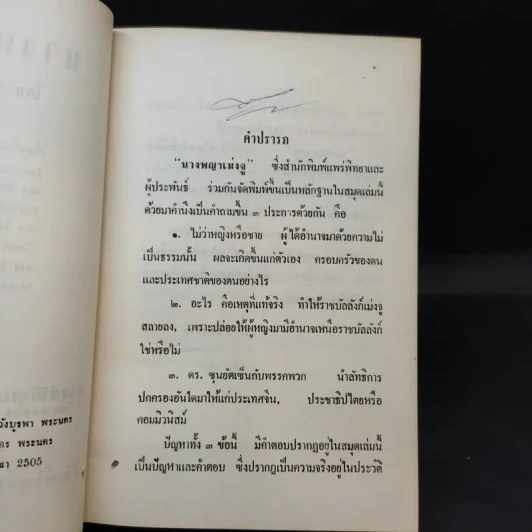 คำปรารภ
"นางพญาเม่งจู" ซึ่งสำนักพิมพ์แพร่พิทยาและ
ผู้ประพันธ์ ร่วมกันจัดพิมพ์ขึ้นเป็นหลักฐานในสมุดเล่มนี้
ด้วยมาคำนึงเป็นคำถามขึ้น ๓ ประการด้วยกัน คือ
๑. ไม่ว่าหญิงหรือชาย ผู้ได้อำนาจมาด้วยความไม่
เป็นธรรมนั้น ผลจะเกิดขึ้นแก่ตัวเอง ครอบครัวของตน
และประเทศชาติของตนอย่างไร
๒. อะไร คือเหตุที่แท้จริง ทำให้ราชบัลลังก์เม่งจู
สลายลง, เพราะปล่อยให้ผู้หญิงมามีอำนาจเหนือราชบัลลังก์
ใช่หรือไม่
๓. ดร. ซุนยัตเซ็นกับพรรคพวก นำลัทธิการ
ปกครองอันใดมาให้แก่ประเทศจีน, ประชาธิปไตยหรือ
คอมมิวนิสม์
ปัญหาทั้ง ๓ ข้อนี้ มีคำตอบปรากฏอยู่ในสมุดเล่มนี้
เป็นปัญหาและคำตอบ ซึ่งปรากฏเป็นความจริงอยู่ในประวัติ
วังบูรพา พระนคร
พระนคร
2505